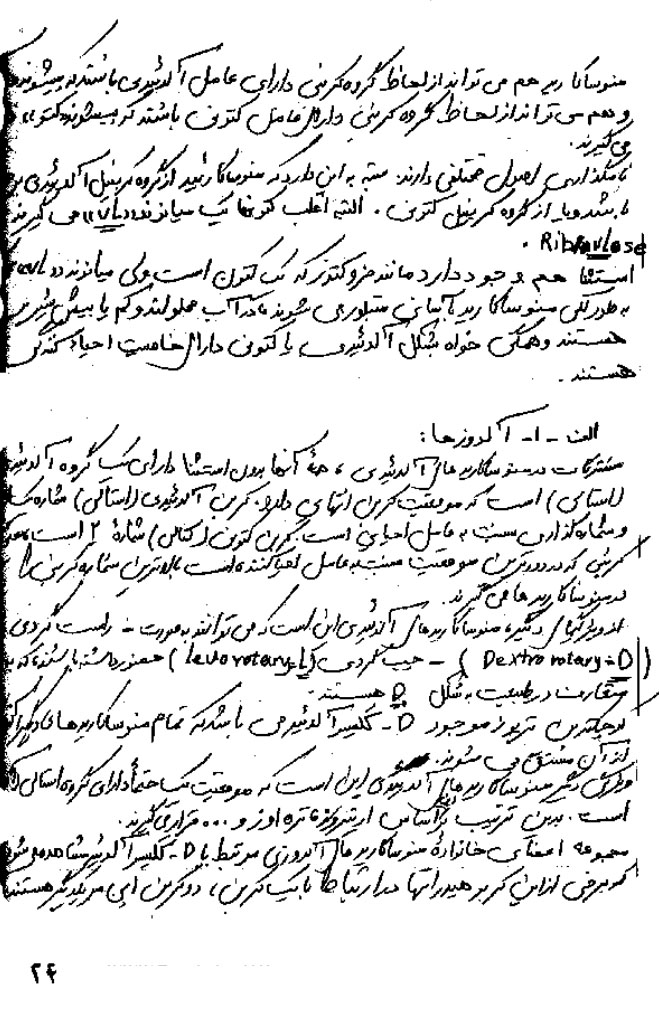 منوساکارید هم می تواند از لحاظ گروه کربنی دارای عامل آلدئیدی باشند که
و هم می تواند از لحاظ گروه کربنی دارای عامل کتونی باشند که
می گیرند.
نامگذاری اصول مختلفی دارند. بسته به این دارد که منوساکارئید از گروه کربنیل آلدئیدی
باشد و یا از گروه کربنیل کتونی. البته اغلب کتونها یک میانوند «ul» می گیرند
Ribulose.
استثنا هم وجود دارد مانند فروکتوز که یک کتون است ولی میانوند ul
به طور کلی منوساکارید با آسانی متبلور می شوند، در آب محلولند و کم یا بیش شیرین
هستند و همگی خواه بشکل آلدئیدی یا کتونی دارای خاصیت احیاء کنندگی
هستند.
الف - ۱- آلدوزها:
مشترکات در منوساکاریدهای آلدئیدی، همۀ آنها بدون استثنا دارای یک گروه آلدئیدی
(استالی) است که موقعیت کربن انتهایی دارد. کربن آلدئیدی (استالی) شماره یک
و شماره گذاری نسبت به عامل احیایی است. کربن کتونی (کتالی) شمارۀ ۲ است،
کربنی که در دورترین موقعیت نسبت به عامل احیا کننده است بالاترین شماره کربن را
در منوساکاریدها می گیرند.
از ویژگیهای دیگر، منوساکاریدهای آلدئیدی این است که می توانند به صورت - راست گردی
(Dextro rotary = D) - چپ گردی (levo rotary = L) حضور داشته باشند، که
متعارف در طبیعت به شکل D هستند.
کوچکترین تریوز موجود D - گلیسرآلدئید می باشد که تمام منوساکاریدهای دیگر
از آن مشتق می شوند.
ویژگی دیگر منوساکاریدهای آلدئیدی این است که موقعیت یک حتماً دارای گروه استالی
است. بدین ترتیب براساس اریتروز، تره اوز و ... قرار می گیرند.
مجموعه اعضای خانوادۀ منوساکاریدهای آلدوزی مرتبط با D - گلیسرآلدئید مشاهده می شود
که برخی از این کربوهیدراتها در ارتباط با یک کربن، دو کربن اپی مر یکدیگر هستند
۲۴